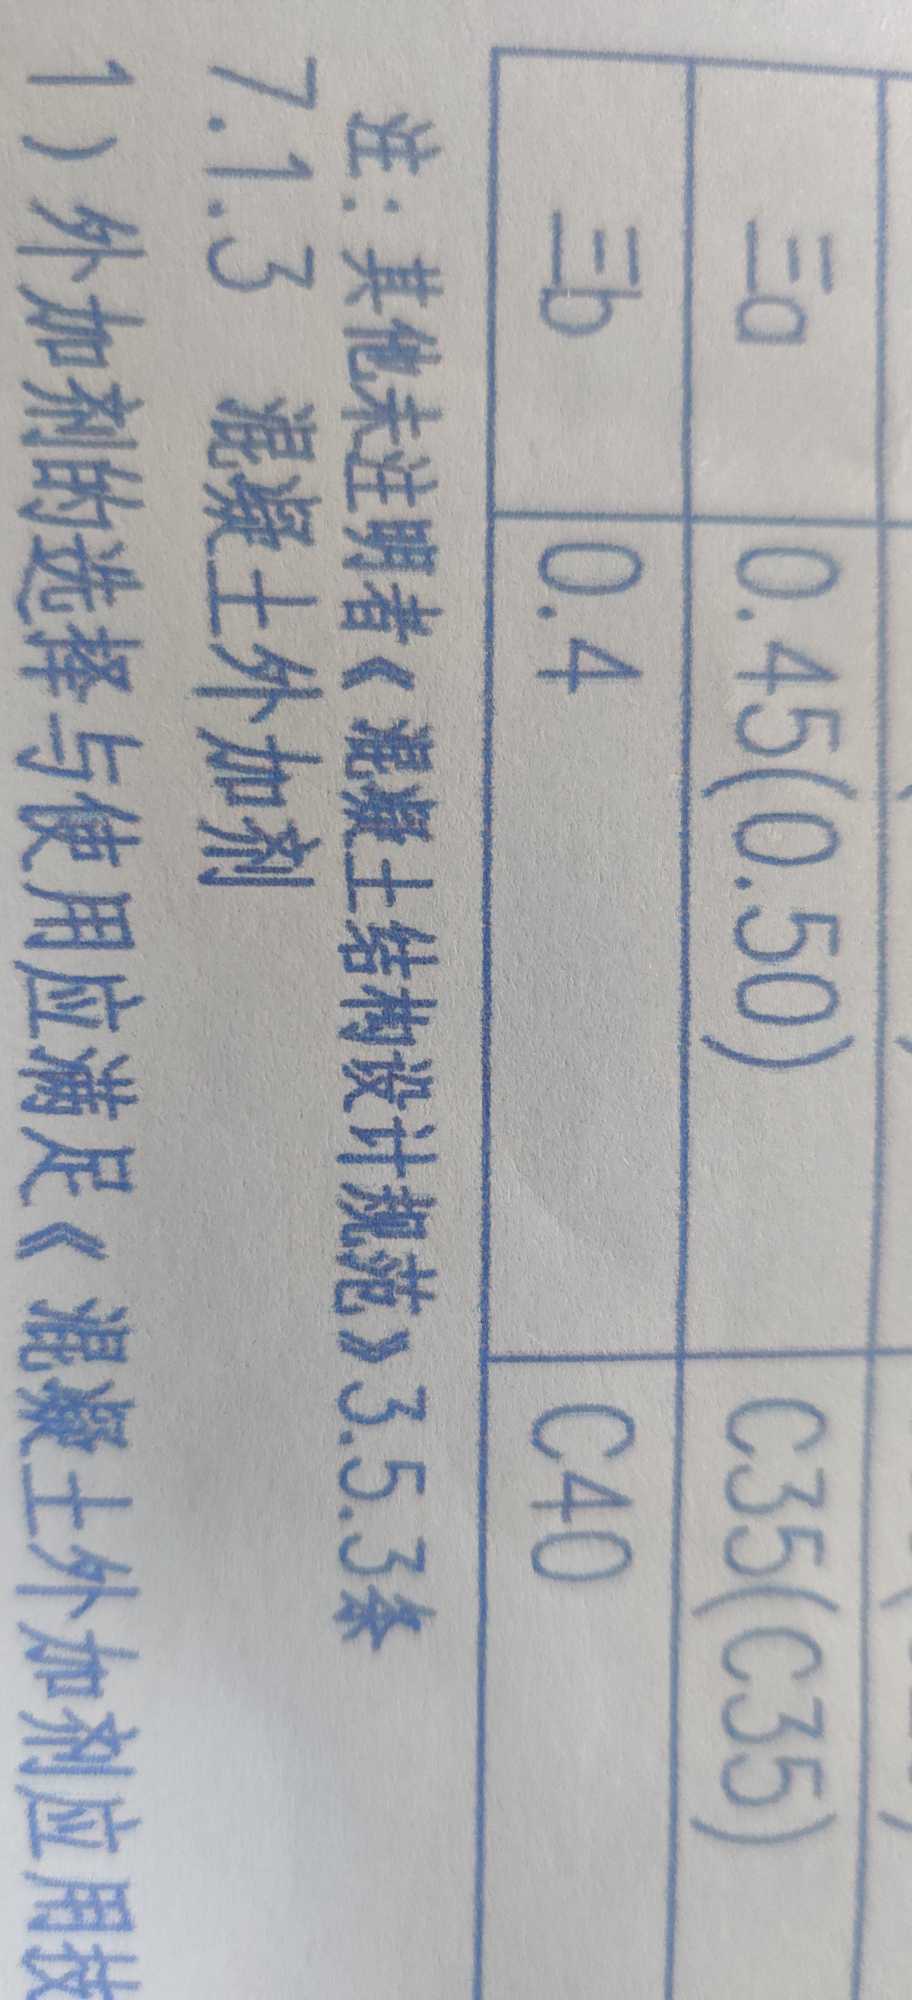 三a 0.45(0.50) C35(C35)
三b 0.4 C40
注：其他未注明者《混凝土结构设计规范》3.5.3条
7.1.3 混凝土外加剂
1）外加剂的选择与使用应满足《混凝土外加剂应用技